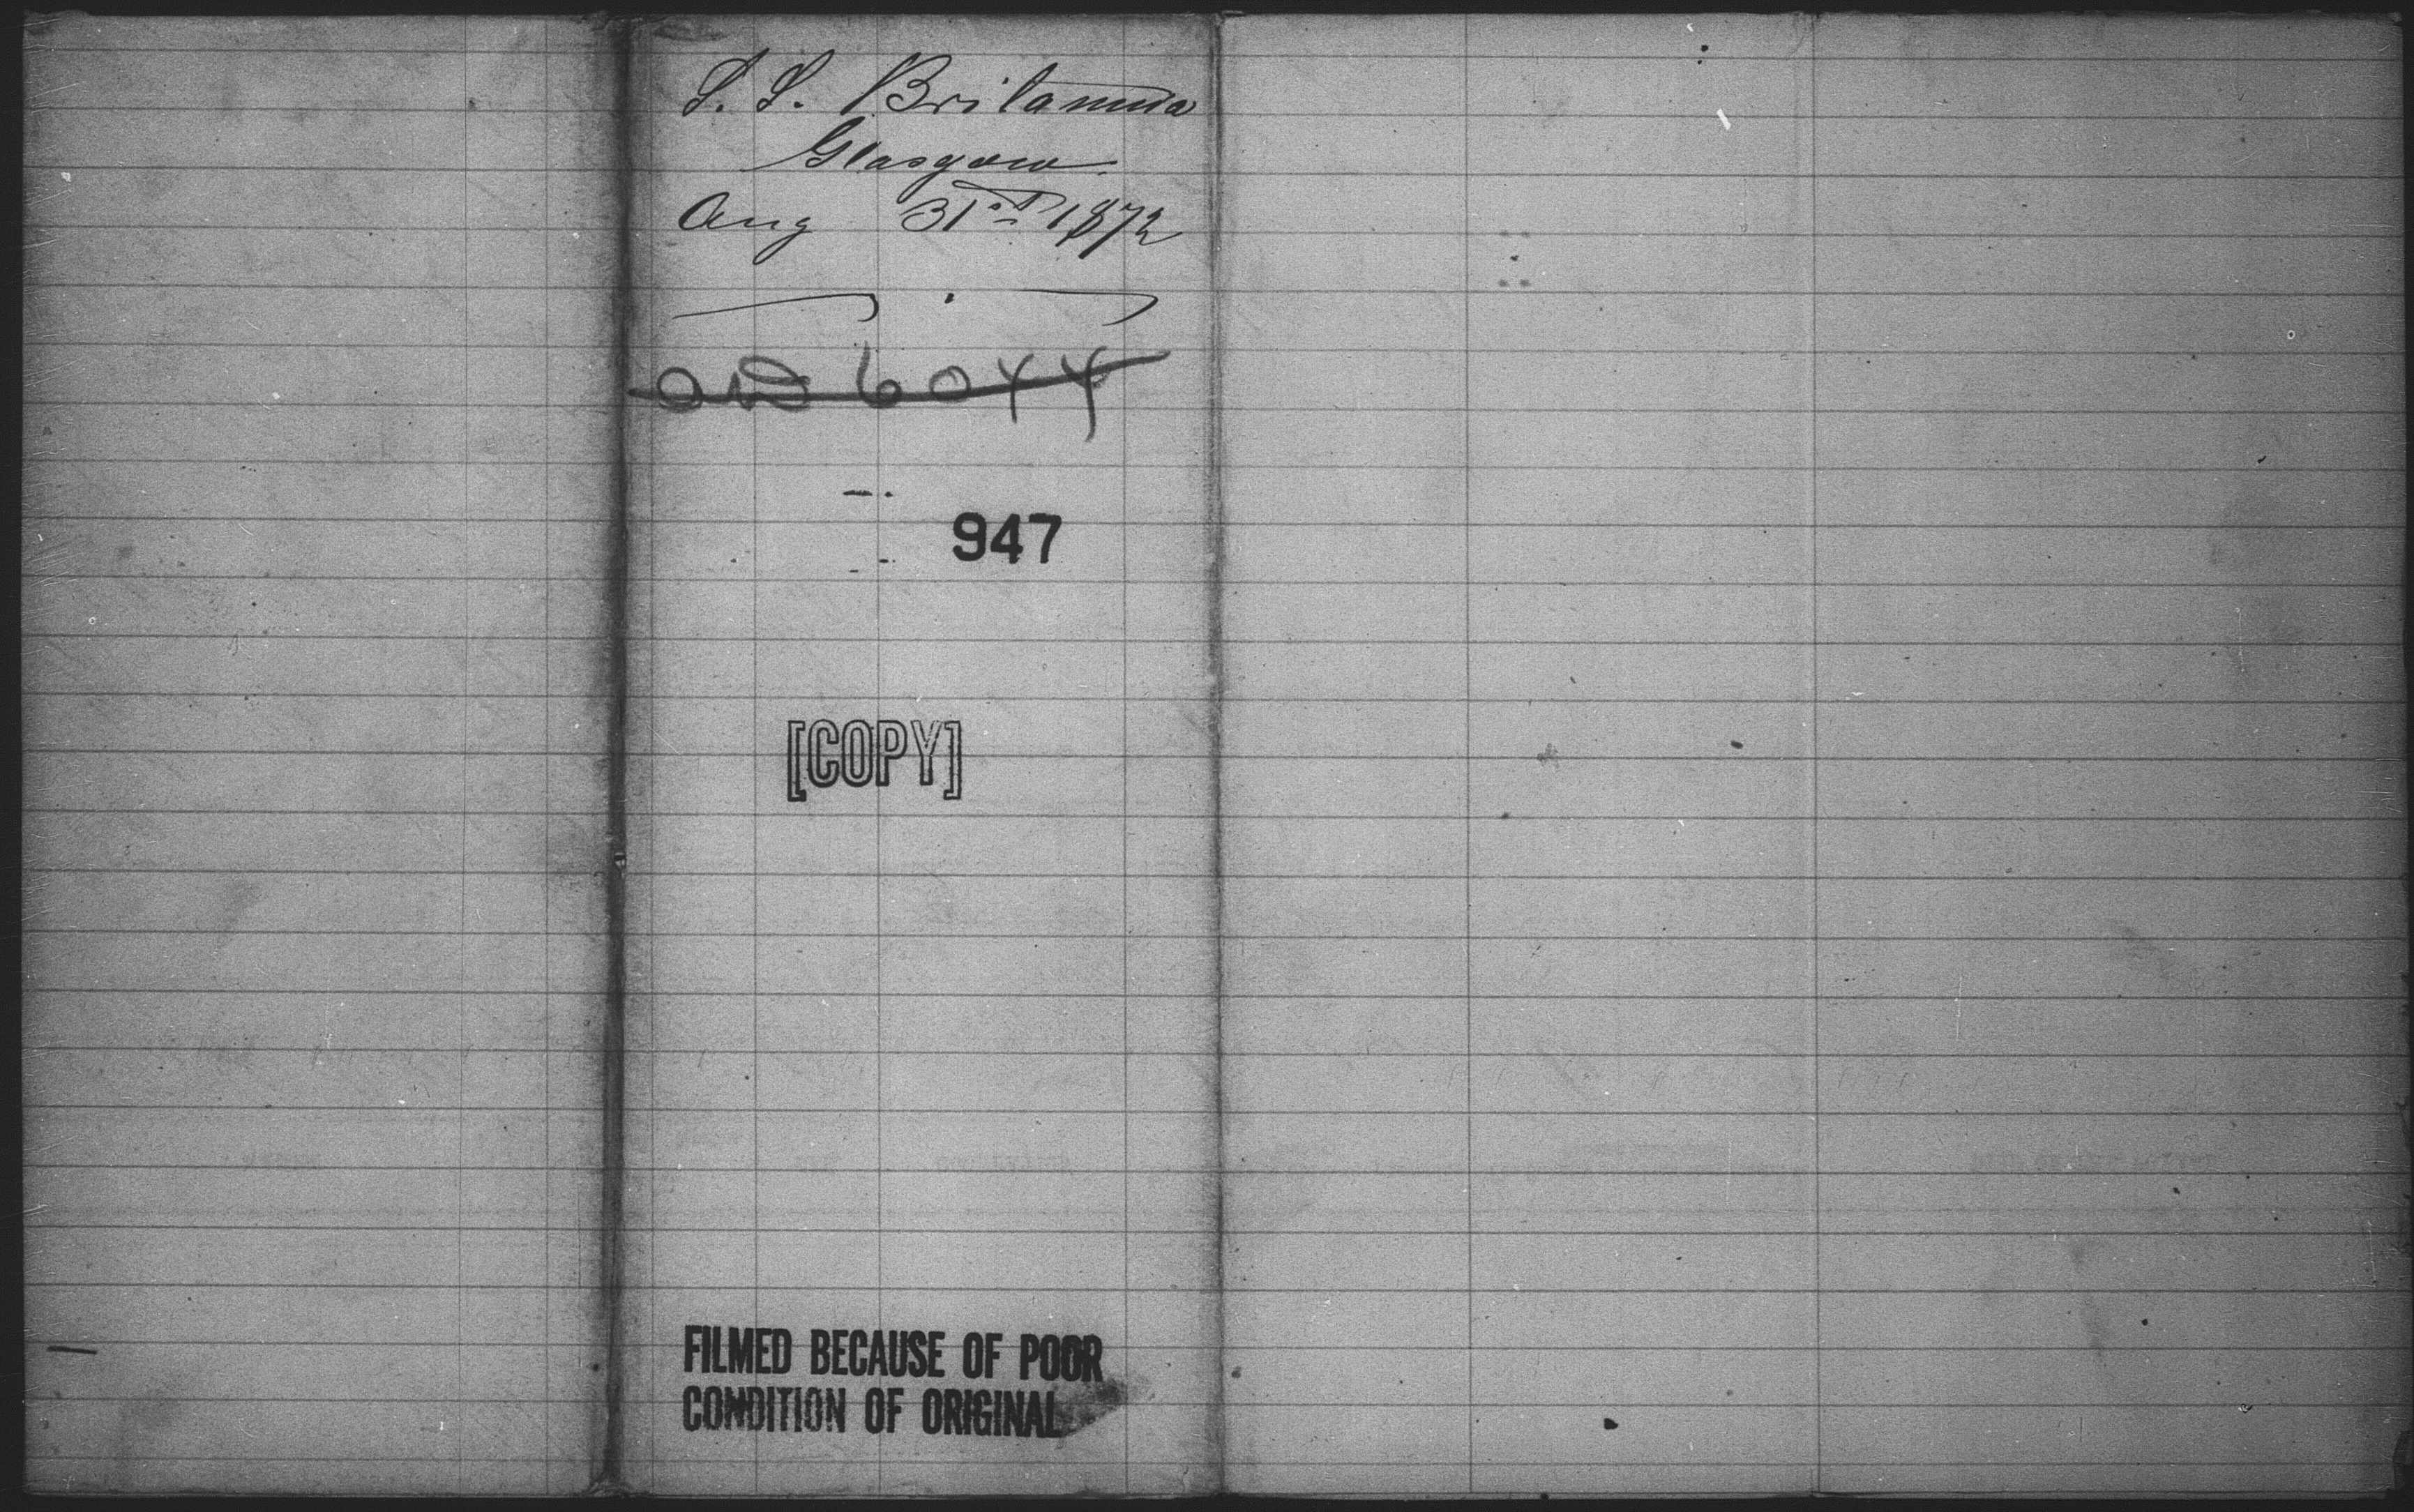 S. S. Britannia
Glasgow
Aug 31st 1872
6044
947
[COPY]
FILMED BECAUSE OF POOR
CONDITION OF ORIGINAL